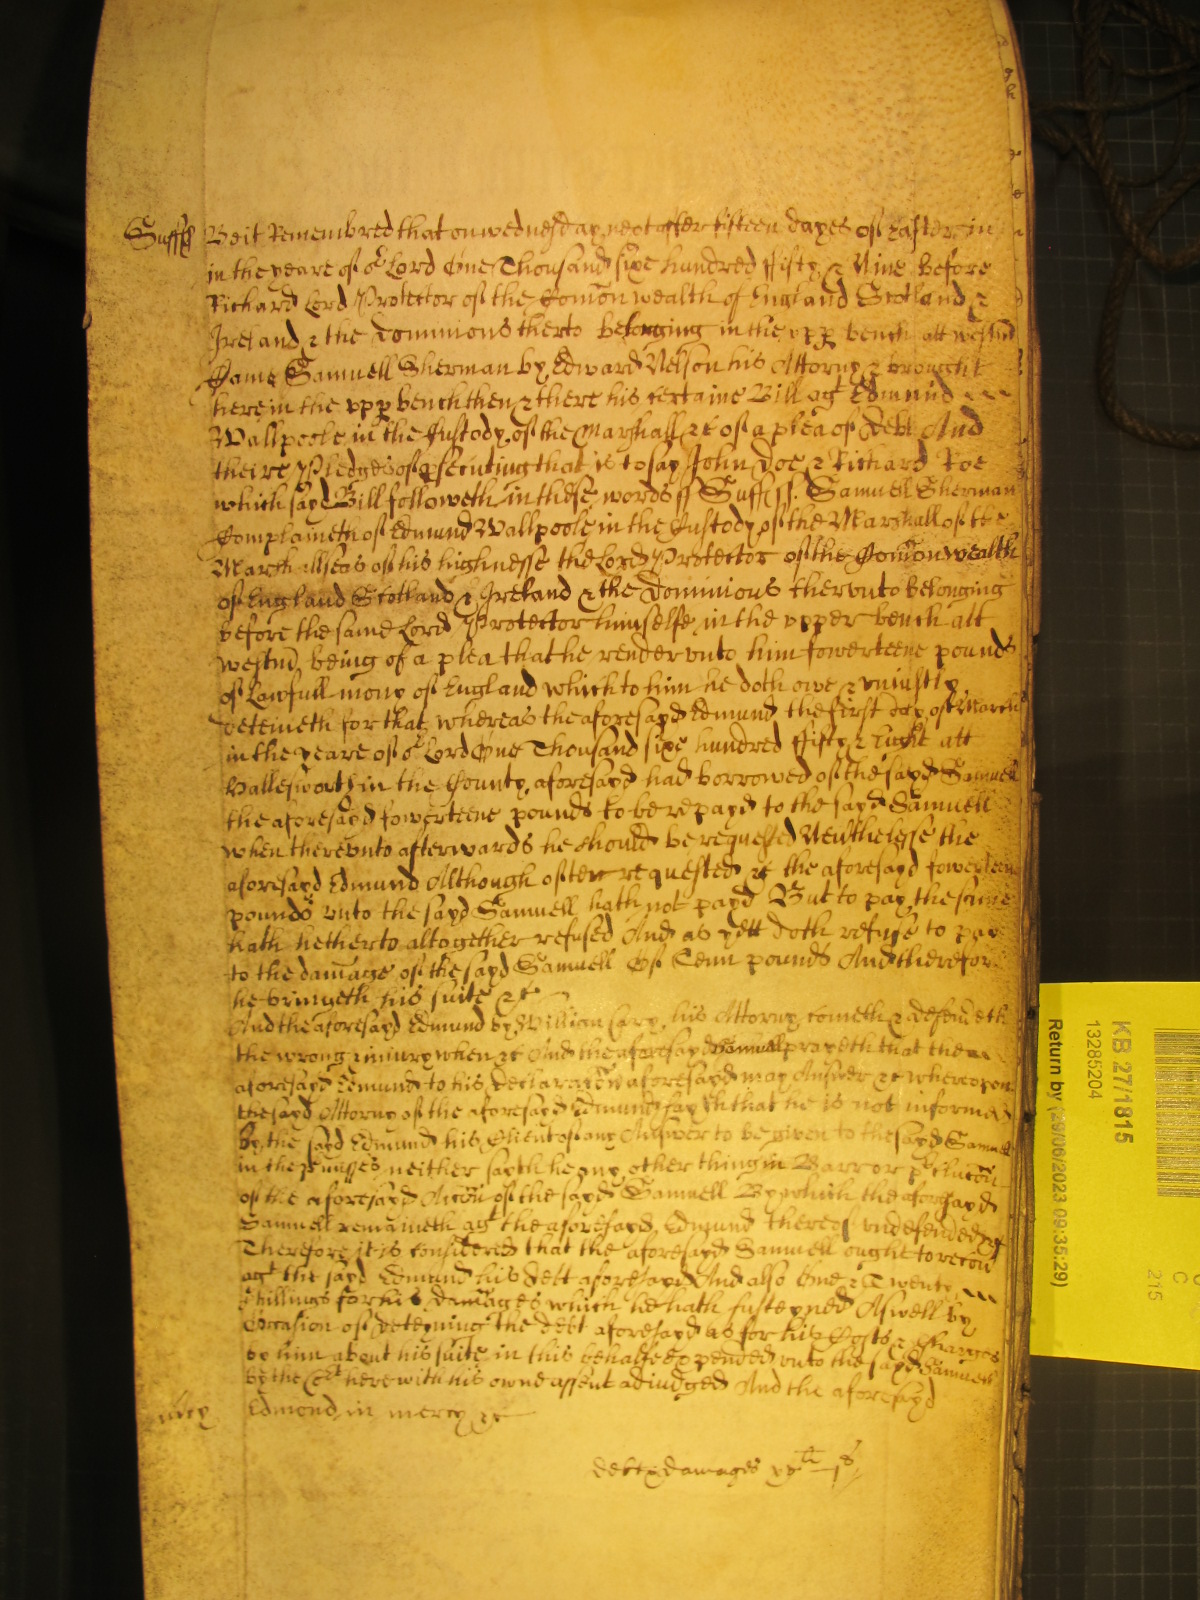 Suffss Beit Remembred that on wednesday next after fifteen dayes of Easter in
in the yeare of or Lord One Thousand sixe hundred ffifty & Nine before
Richard Lord Protector of the Comon wealth of England Scotland &
Ireland & the Dominions therto belonging in the vpp bench att westm
Came Samuell Sherman by Edward Nelson his Attorny & brought
here in the vpp bench then & there his certaine Bill agt Edmund
Wallpoole in the Custody of the Marshall &c of a plea of Debt And
theire Pledges of psecuting that is to say John Doe & Richard Roe
which sayd Bill followeth in these words ss Suff ss. Samuell Sherman
Complaineth of Edmund Wallpoole in the Custody of the Marshall of the
Marshallseas of his highnesse the Lord Protector of the Comon wealth
of England Scotland & Ireland & the Dominions thervnto belonging
before the same Lord Protector himselfe in the vpper bench att
westm being of a plea that he render vnto him fowerteene pounds
of Lawfull mony of England which to him he doth owe & vniustly
deteineth for that whereas the aforesayd Edmund the first day of March
in the yeare of or Lord One Thousand sixe hundred ffifty & Eight att
Hallesworth in the County aforesayd had borrowed of the sayd Samuell
the aforesayd fowerteene pounds to be repayd to the sayd Samuell
when therevnto afterwards he should be requested Neuthelesse the
aforesayd Edmund Although often requested &c the aforesayd fowerteene
pounds vnto the sayd Samuell hath not payd But to pay the same
hath hetherto altogether refused And as yett doth refuse to pay
to the damage of the sayd Samuell Of Tenn pounds And therefore
he bringeth his suite &c
And the aforesayd Edmund by William Cary his Attorny cometh & defendeth
the wrong & iniury when &c And the aforesayd Samuell prayeth that the
aforesayd Edmund to his Declaracon aforesayd may Answer &c wherevpon
the sayd Attorny of the aforesayd Edmund sayth that he is not informed
by the sayd Edmund his Client of any Answer to be given to the sayd Samuell
in the pmisses neither sayth he any other thing in Barr or pclucon
of the aforesayd Accon of the sayd Samuell By which the aforesayd
Samuell remaineth agt the aforesayd Edmund thereof vndefended &c
Therefore it is considered that the aforesayd Samuell ought to recou
agt the sayd Edmund his Debt aforesayd And also One & Twenty
Shillings for his Damages which he hath susteyned Aswell by
Occasion of Deteyning the debt aforesayd as for his Costs & Charges
by him about his suite in this behalfe expended vnto the sayd Samuell
by the Cort here with his owne assent adiudged And the aforesayd
mcy Edmond in mercy &c
debt & damages xvli js
KB 27/1815
13285204
Return by (29/06/2023 09:35:29)
215